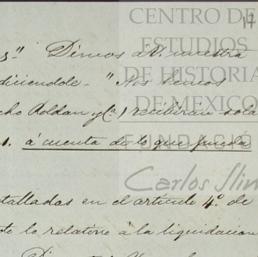 CENTRO DE
ESTUDIOS
DE HISTORIA
DE MEXICO
FUNDACIÓ
Carlos Slim
17
s" Dicenos á V. nuestra
diciendole - "Nos hemos
cho Roldan y Cª) recibirán sola
s. á cuenta de lo que pueda
talladas en el articulo 4º. de
to lo relativo à la liquidacion